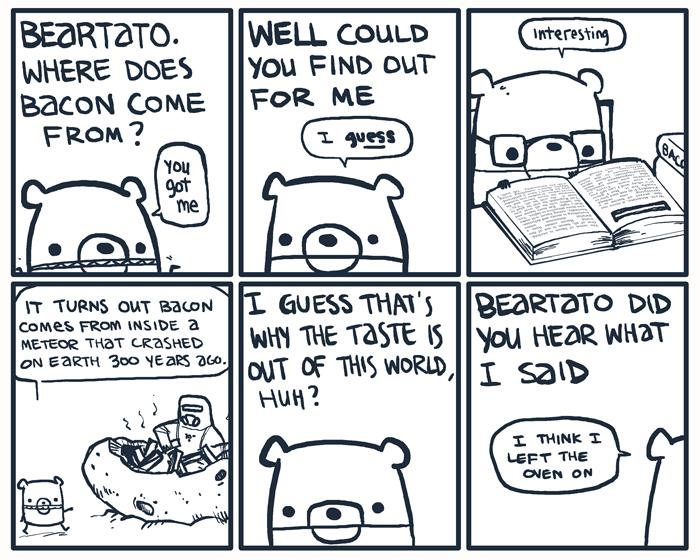 BEARTATO.
WHERE DOES
BACON COME
FROM?
You
got
me
WELL COULD
YOU FIND OUT
FOR ME
I guess
Interesting
IT TURNS OUT BACON
COMES FROM INSIDE A
METEOR THAT CRASHED
ON EARTH 300 YEARS AGO.
I GUESS THAT'S
WHY THE TASTE IS
OUT OF THIS WORLD,
HUH?
BEARTATO DID
YOU HEAR WHAT
I SAID
I THINK I
LEFT THE
OVEN ON